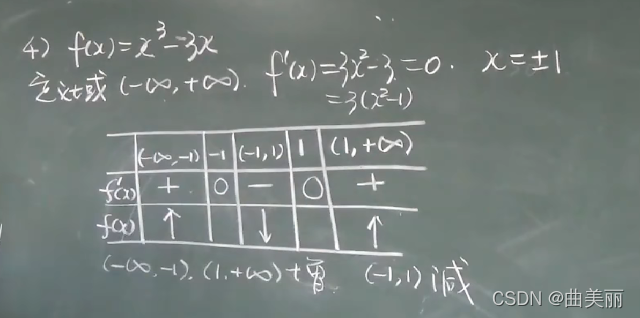 4) f(x)=x³-3x
定义域 (-∞,+∞). f'(x)=3x²-3=0. x=±1
=3(x²-1)
(-∞,-1) -1 (-1,1) 1 (1,+∞)
f'(x) + 0 - 0 +
f(x) ↑ ↓ ↑
(-∞,-1). (1,+∞)增 (-1,1)减
CSDN @曲美丽